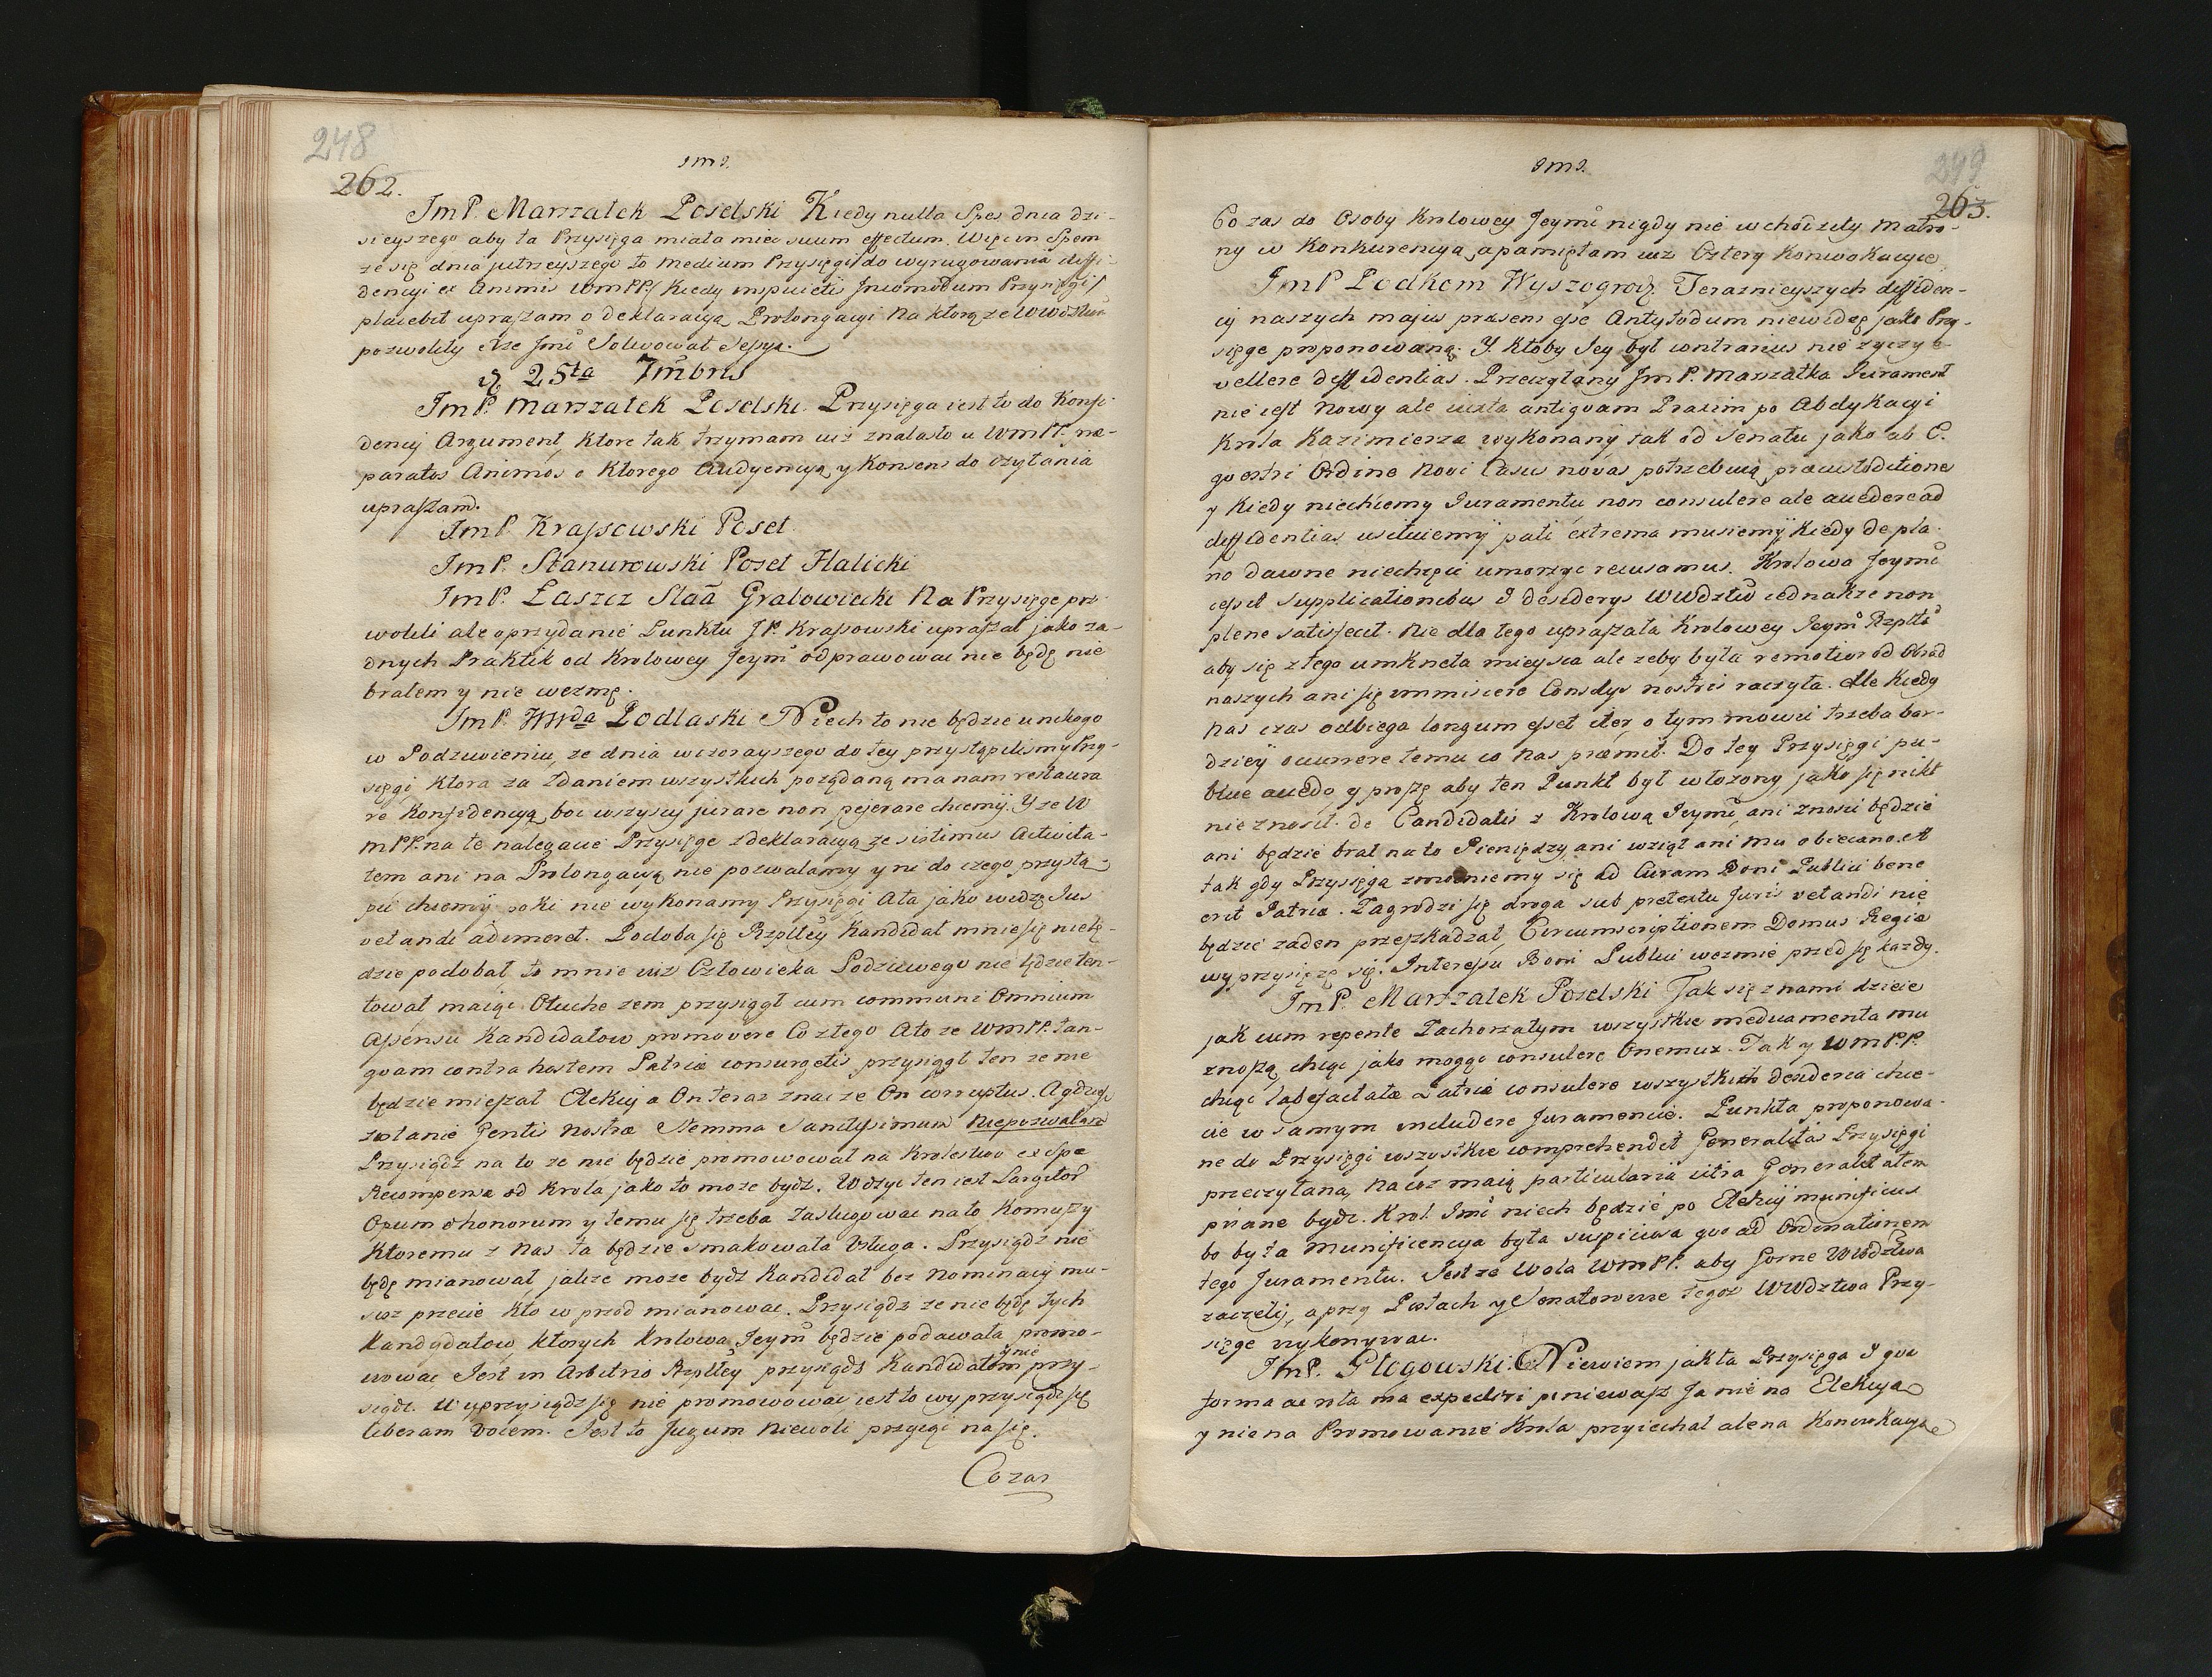 248
262.
JmP. Marszałek Poselski Kiedy nulla Spes dnia dzi-
sieyszego aby ta Przysięga miała mieć suum effectum. Więc in Spem
ze się dnia jutrzeyszego to medium Przysięgi do wyrugowania diffi-
dencyi ex Animis WmPP. Kiedy inspicietis Incomodum Przysięgi
placebit upraszam o deklaracyą Prolongacyi na którą ze Wwdztwa
pozwoliły Xże Jmć Solwował Sessyą.
25ta 7mbris
JmP. Marszałek Poselski. Przysięga iest to do Konfi-
dencij Argument, ktore tak trzymam iuż znalasło u WmPP. præ-
paratos Animos o ktorego Audyencyą y Konsens do czytania
upraszam.
JmP Krassowski Poseł
JmP. Stanurowski Poseł Halicki
JmP. Łaszcz Staã Grabowiecki Na Przysięgę poz-
wolili ale o przydanie Punktu JP. Krassowski upraszał jako za-
dnych Praktik od Krolowey Jeymci odprawować nie będę nie
brałem y nie wezmę.
JmP. Wwda Podlaski Niech to nie będzie u nikogo
w Podziwieniu, ze dnia wczorayszego do tey przystąpilismy Przy-
sięgi, ktora za zdaniem wszystkich pożądaną ma nam restaura
re Konfidencyą, boć wszyscy jurare non pejerare chcemy. Y ze W
mPP. na te nalegacie Przysięge z deklaracyą ze sistimus Activita-
tem ani na Prolongacyą nie pozwalamy y ni do czego przystą-
pić chcemy poki nie wykonamy Przysięgi Ata jako widzę Jus
vetandi adimeret. Podoba się Rzpltey Kandidat mnie się nie bę-
dzie podobał to mnie iuż Człowieka Podciwego nie będzie ten-
tował maiąc Otuche zem przysiągł cum communi Omnium
Assensu Kandidatow promovere Co z tego Ato ze WmPP. tan-
quam contra hostem Patriæ consurgetis przysiągł ten ze nie
będzie mieszał Elekcij a On teraz znać ze On corruptus. A gdzież
zostanie Gentis nostræ Stemma Sanctissimum Niepozwalam
Przysiądz na to ze nie będzie promowował na Krolestwo ex Spe
Recompensæ od Krola jako to może bydz. Wszyc ten iest Largitor
Opum & honorum y temu się trzeba zasługować na to Komuszy
Ktoremu z nas ta będzie smakowała Usługa. Przysiądz nie
będę mianował jakże może bydz Kandidat bez nominacij mu-
sisz przecie kto w przod mianować. Przysiądz ze nie będę tych
Kandydatow, których Krolowa Jeymć będzie podawała promo-
wować Jest in Arbitrio Rzpltey przysiądz Kandidatom y nie przy-
siądz. Wyprzysiądz się nie promowować iest to wyprzysiądz się
liberam Vocem. Jest to Jugum niewoli przyiąć na się.
Cozas
249
263.
Co zas do Osoby Krolowey Jeymci nigdy nie wchodziły Matro-
ny w Konkurencyą, a pamiętam iuż Cztery Konwokacyie
JmP Podkom Wyszogrodz. Teraznieyszych diffiden-
cij naszych majus præsens esse Antytodum niewidzę jako Przy-
sięge proponowaną. Y. Ktoby Jey był contrarius nie zyczy e-
vellere diffidentias. Przeczytany JmP. Marszałka Jurament
nie iest Nowy ale iuxta antiquam Praxim po Abdykacyi
Krola Kazimierza wykonany tak od Senatu jako ab E-
questri Ordine Novi Casus novas potrzebuią præcustoditiones
y Kiedy niechcemy Juramentu non consulere ale accedere ad
diffidentias usiłuiemy pati extrema musiemy Kiedy de pla-
no dawne niechęci umorzyć recusamus. Krolowa Jeymć
cessit supplicationibus & desiderys WWdztw iednakże non
plene satisfecit. Nie dla tego upraszała Krolowey Jeymci Rzplta
aby się z tego umkneła mieysca ale żeby była remotior od Obrad
naszych ani się immiscere Consilys nostris raczyła. Ale kiedy
nas czas odbiega longum esset iter, o tym mowić trzeba bar-
dziey ocurrere temu co nas præmit. Do tey Przysięgi pu-
blice accedo, y proszę aby ten Punkt był włożony jako się nikt
nie znosił de Candidatis z Krolową Jeymcią, ani znosić będzie
ani będzie brał na to Pieniędzy, ani wziął ani mu obiecano. A
tak gdy Przysięgą zmocniemy się ad Curam Boni Publici bene
erit Patriæ. Zagrodzi się droga sub pretextu Juris vetandi nie
będzie zaden przeszkadzał, Circumscriptionem Domus Regiæ
wyprzysięże się. Interessu Boni Publici wezmie przed się każdy.
JmP. Marszałek Poselski Jak się z nami dzieie
jak cum repente Zachorzałym wszystkie medicamenta mu
znoszą, chcąc jako mogąc consulere Onemuz. Tak y WmPP.
chcąc labefactatæ Patriæ consulere wszystkich desideria chce-
cie w samym includere Juramencie. Punkta proponowa-
ne do Przysięgi wszystkie comprehendit Generalitas Przysięgi
przeczytana, na coz maią particularia citra Generalitatem
pisane bydz. Krol Jmć niech będzie po Elekcij munificus
bo by ta Munificencya była suspiciosa quo ad Ordinationem
tego Juramentu. Jest ze Wola WmPP. aby Gorne Wwdztwa
zaczeły, a przy Posłach y Senatorowie tegoż WWdztwa Przy-
sięge wykonywać.
JmP. Głogowski. Niewiem jak ta Przysięga & quæ
forma ac rota ma expediri ponieważ Ja nie na Elekcyą
y nie na Promowanie Krola przyiechał ale na Konwokacyą